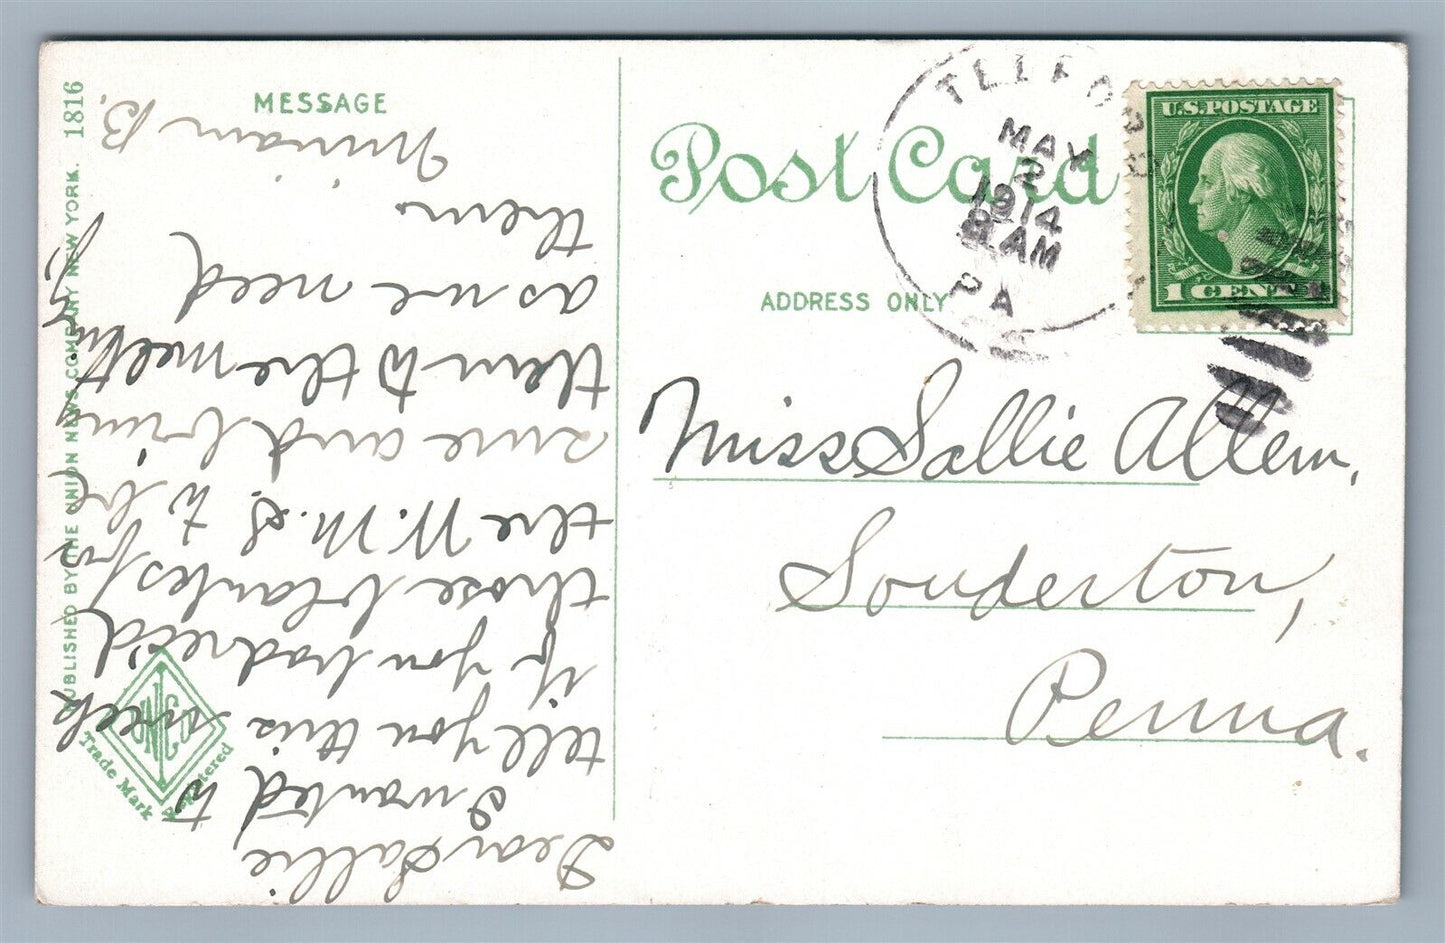 MESSAGE
Post Card
ADDRESS ONLY
TELFORD
MAY
2
1914
8 AM
PA
U.S. POSTAGE
1 CENT 1
Miss Sallie Allem,
Souderton,
Penna.
Dear Sallie,
I wanted to
tell you this week
if you hadres'd
those blanks for
the W.M.S. to be
sure and bring
them to the meeting,
as we need
them.
Miriam B.
PUBLISHED BY THE UNION NEWS COMPANY NEW YORK. 1816
UNECO
Trade Mark Registered